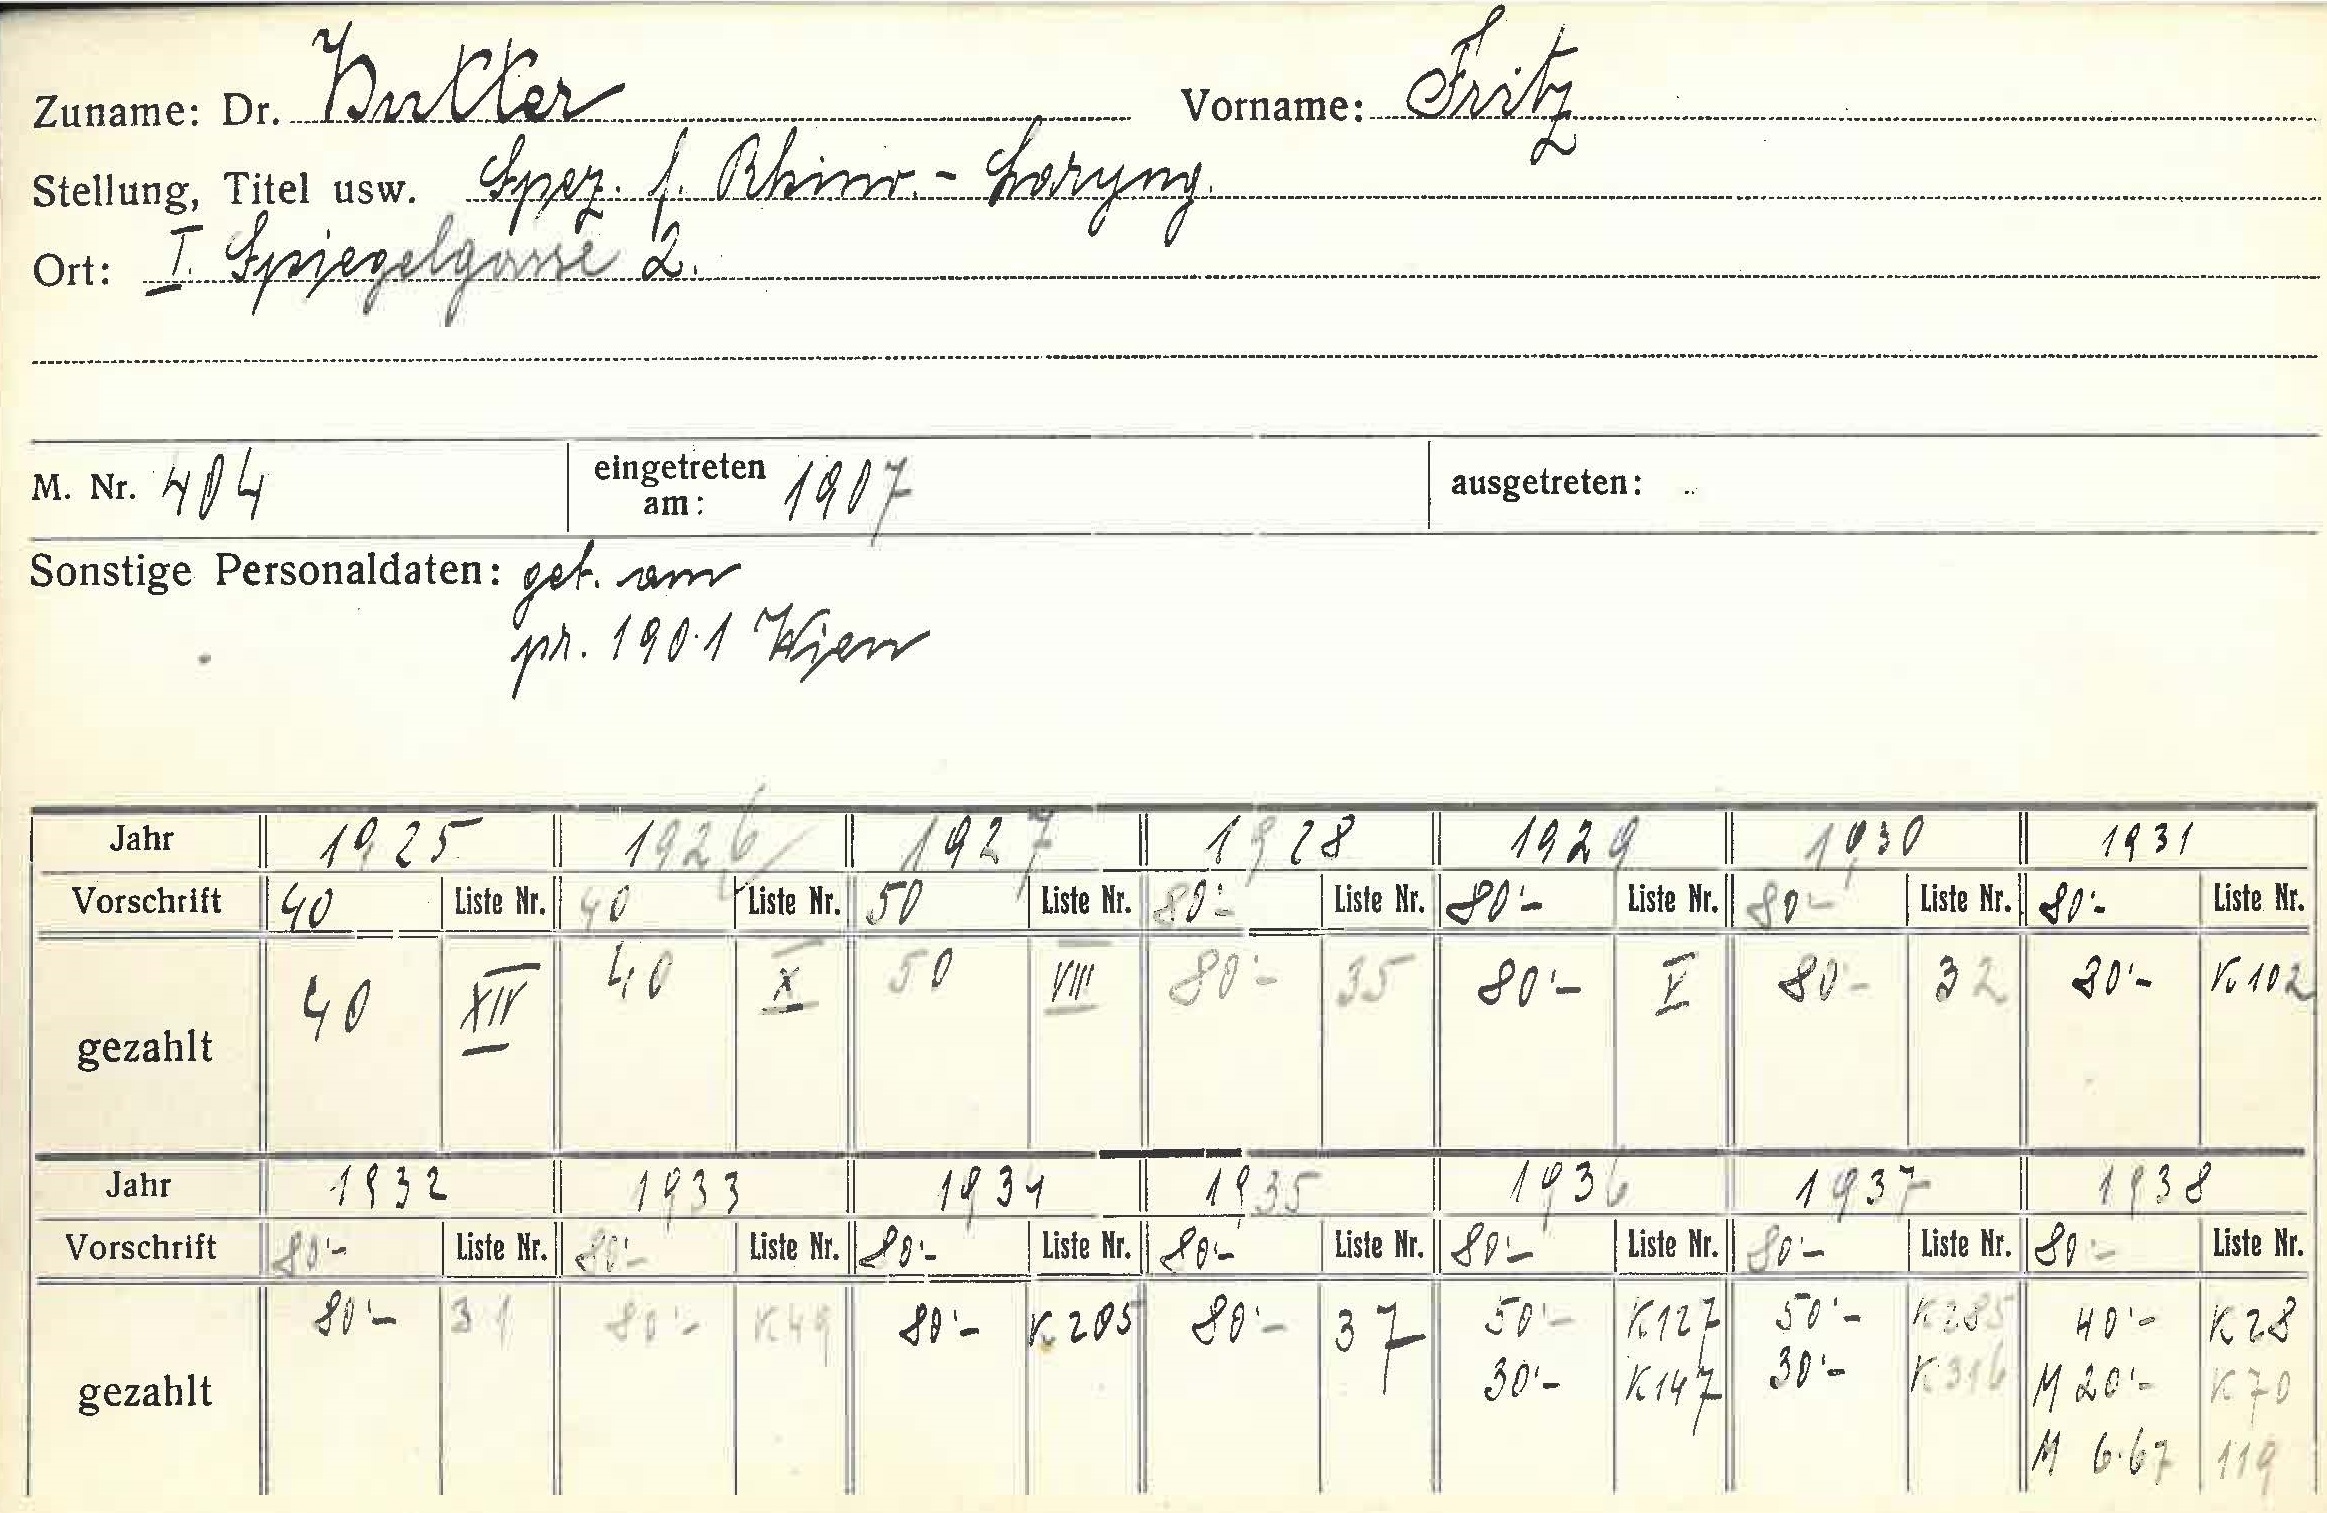 Zuname: Dr. Hutter Vorname: Fritz
Stellung, Titel usw. Spez. f. Rhino.- Laryng.
Ort: I. Spiegelgasse 2.
M. Nr. 404 eingetreten am: 1907 ausgetreten:
Sonstige Personaldaten: geb. am
pr. 1901 Wien
Jahr 1925 1926 1927 1928 1929 1930 1931
Vorschrift 40 Liste Nr. 40 Liste Nr. 50 Liste Nr. 80'- Liste Nr. 80'- Liste Nr. 80'- Liste Nr. 80'- Liste Nr.
gezahlt 40 XIV 40 X 50 VIII 80'- 35 80'- V 80'- 32 80'- K 102
Jahr 1932 1933 1934 1935 1936 1937 1938
Vorschrift 80'- Liste Nr. 80'- Liste Nr. 80'- Liste Nr. 80'- Liste Nr. 80'- Liste Nr. 80'- Liste Nr. 80'- Liste Nr.
gezahlt 80'- 31 80'- K 49 80'- K 205 80'- 37 50'- K 127 50'- K 285 40'- K 28
30'- K 147 30'- K 316 M 20'- K 70
M 6.67 119